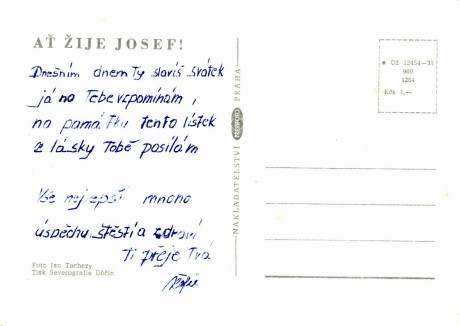 AŤ ŽIJE JOSEF!
Dnešním dnem Ty slavíš svátek
já na Tebe vzpomínám,
na památku tento lístek
z lásky Tobě posílám
Vše nejlepší mnoho
úspěchu štěstí a zdraví
Ti přeje Tvá
Foto Jan Tachezy
Tisk Severografia Děčín
NAKLADATELSTVÍ
PRAHA
● OZ 12454—31
969
1284
Kčs 1,—